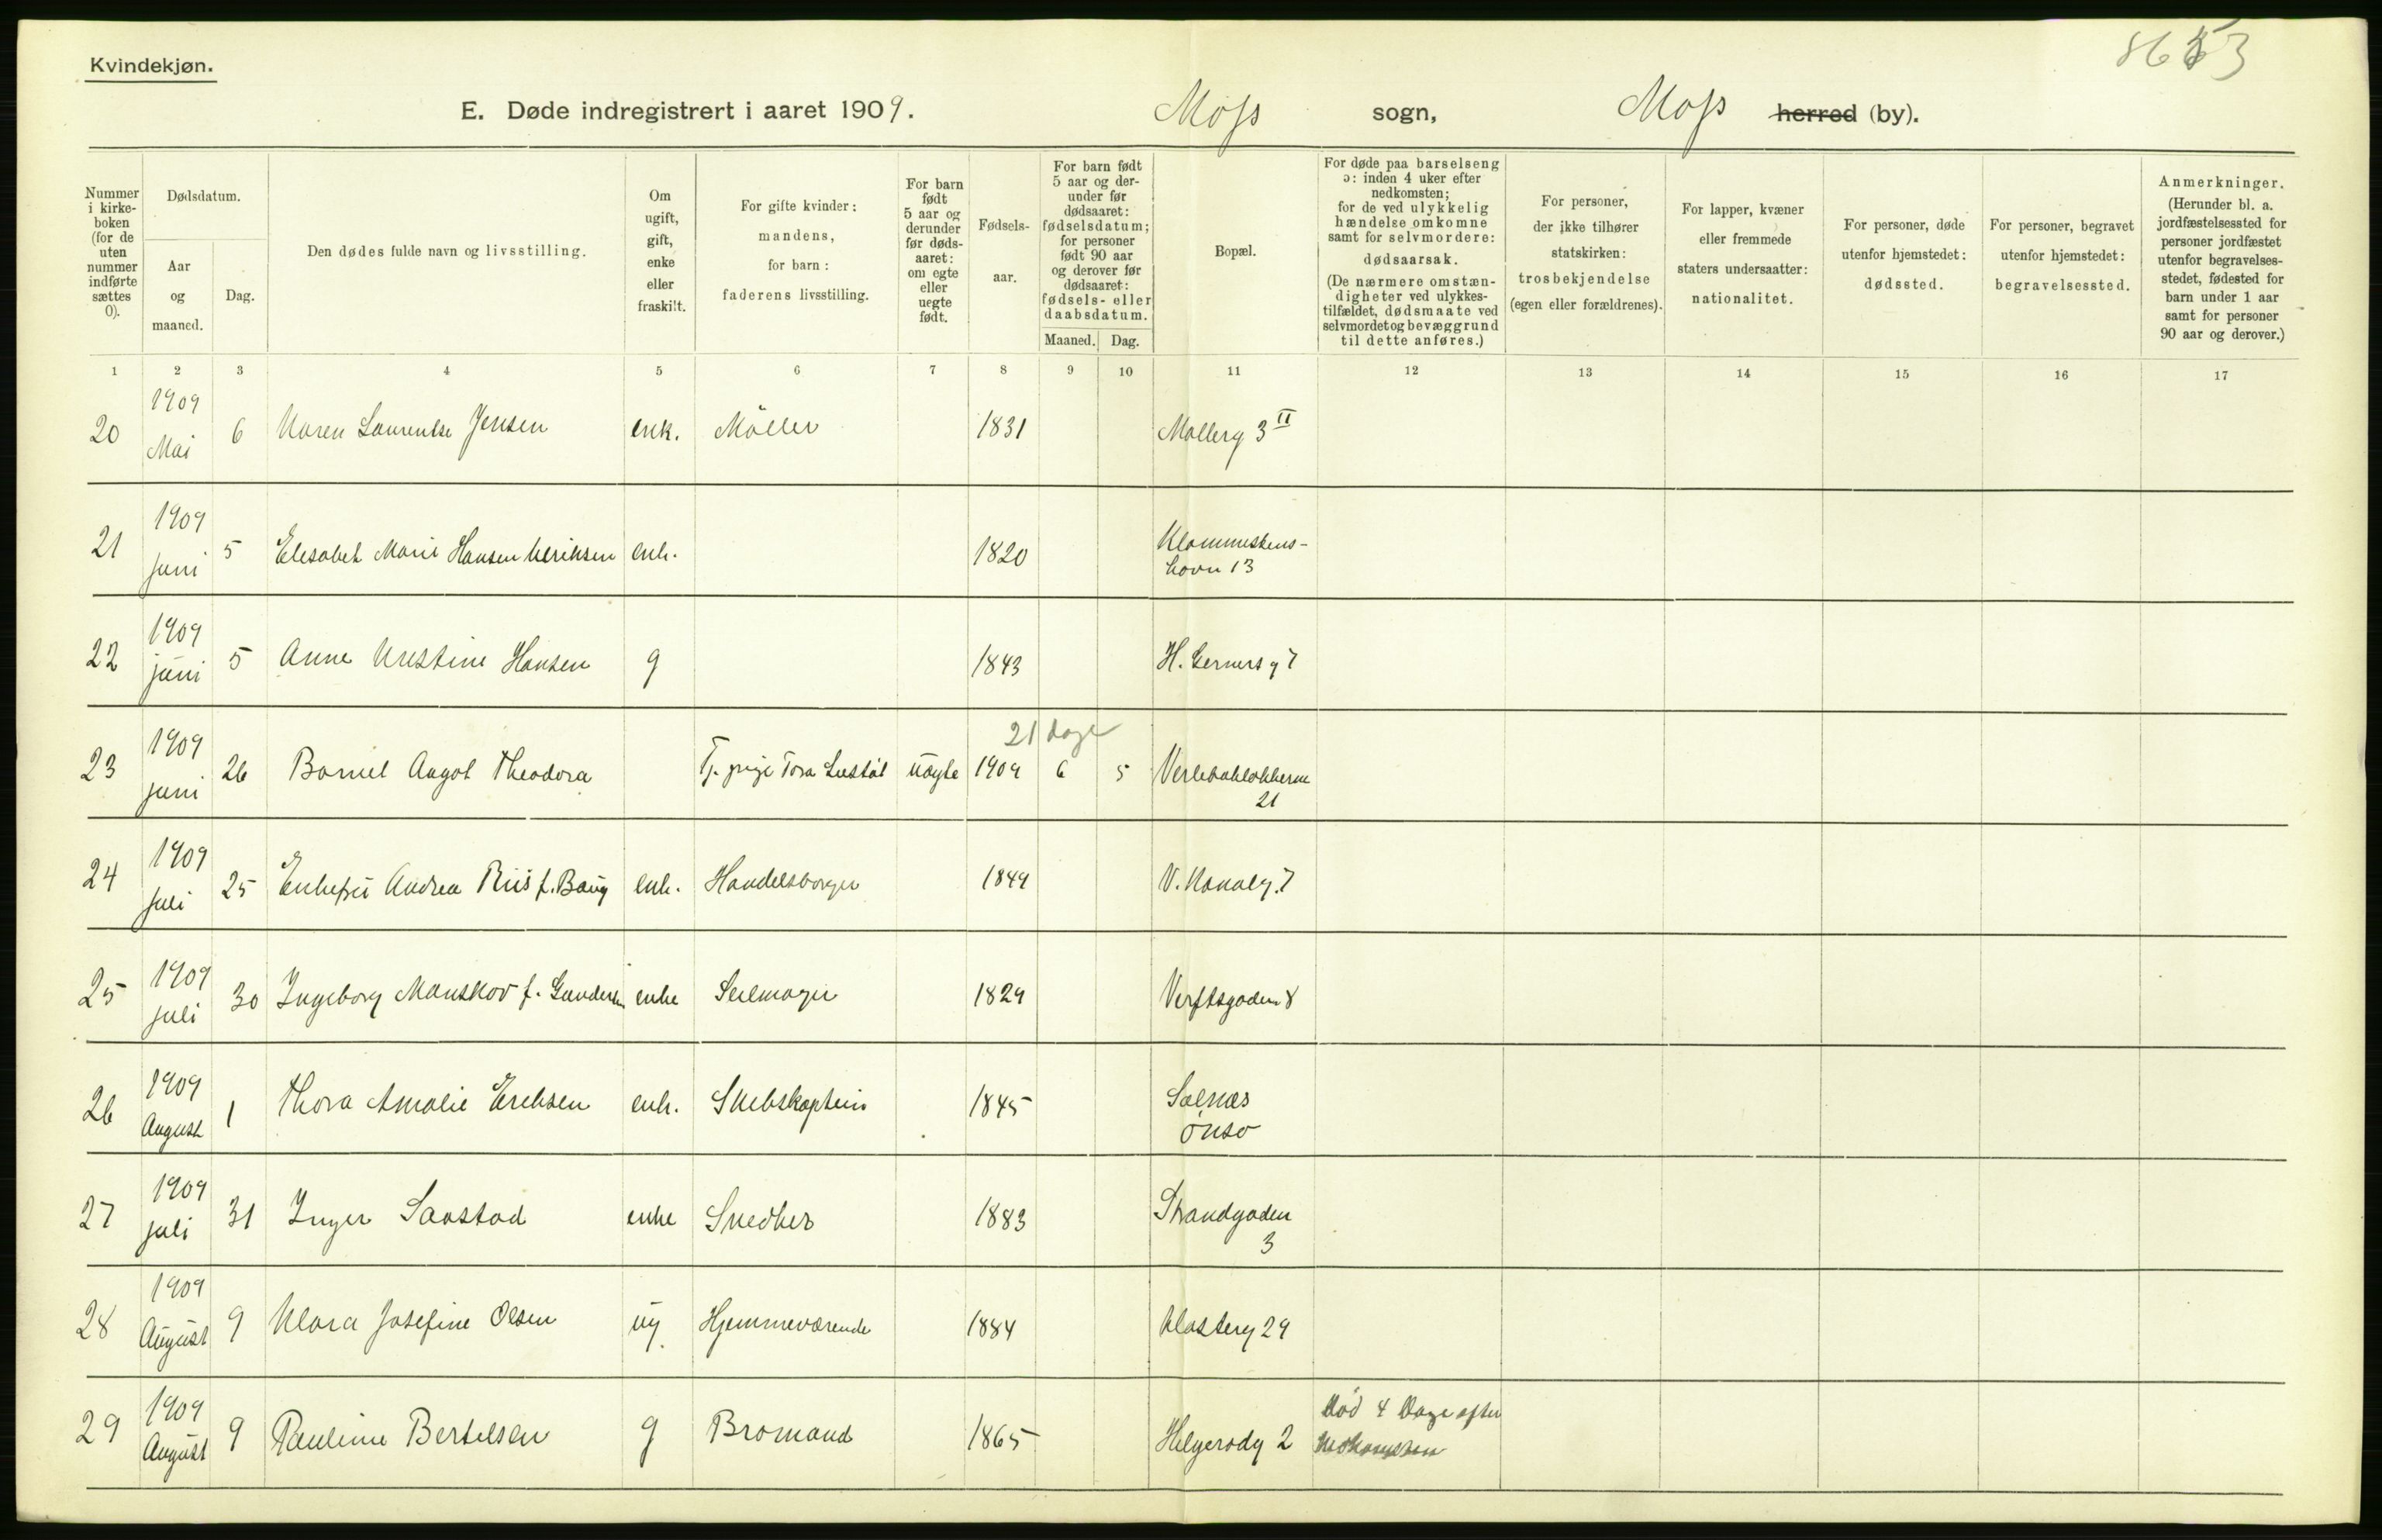 8653
Kvindekjøn.
E. Døde indregistrert i aaret 1909. Moss sogn, Moss herred (by).
Nummer i kirke-boken (for de uten nummer indførte sættes 0).
Dødsdatum.
Aar og maaned.
Dag.
Den dødes fulde navn og livsstilling.
Om ugift, gift, enke eller fraskilt.
For gifte kvinder: mandens, for barn: faderens livsstilling.
For barn født 5 aar og derunder før døds-aaret: om egte eller uegte født.
Fødsels-aar.
For barn født 5 aar og der-under før dødsaaret: fødselsdatum; for personer født 90 aar og derover før dødsaaret: fødsels- eller daabsdatum.
Maaned. Dag.
Bopæl.
For døde paa barselseng ɔ: inden 4 uker efter nedkomsten; for de ved ulykkelig hændelse omkomne samt for selvmordere: dødsaarsak. (De nærmere omstæn-digheter ved ulykkes-tilfældet, dødsmaate ved selvmordet og bevæggrund til dette anføres.)
For personer, der ikke tilhører statskirken: trosbekjendelse (egen eller forældrenes).
For lapper, kvæner eller fremmede staters undersaatter: nationalitet.
For personer, døde utenfor hjemstedet: dødssted.
For personer, begravet utenfor hjemstedet: begravelsessted.
Anmerkninger. (Herunder bl. a. jordfæstelsessted for personer jordfæstet utenfor begravelses-stedet, fødested for barn under 1 aar samt for personer 90 aar og derover.)
1 2 3 4 5 6 7 8 9 10 11 12 13 14 15 16 17
20 1909 Mai 6 Karen Laurentse Jensen enk. Möller 1831 Møllerg 3 II
21 1909 Juni 5 Elisabet Marie Hansen enk. 1820
13
22 1909 juni 5 Anne Kristine Hansen g 1843 H. Gerners g 7
21 dage
23 1909 juni 26 Barnet Aagot Theodora Tora uægte 1909 6 5
21
24 1909 Juli 25 Enkefru Andrea Riis f. Baug enk. Handelsborger 1849 V. Kanalg. 7
25 1909 juli 30 Ingeborg Manskov f. Gundersen enke Seilmager 1829 Verftsgaden 8
26 1909 August 1 Thora Amalie Eriksen enk. Skibskaptein 1845 Saltnes
Onsø
27 1909 juli 31 Inger Saastad enke Snedker 1883 Strandgaden
3
28 1909 August 9 Klara Josefine Olsen ug. Hjemmeværende 1884 Klosterg 29
29 1909 August 9 Pauline Bertelsen g Bromand 1865 Helgerødg 2 Død 4 Dage efter